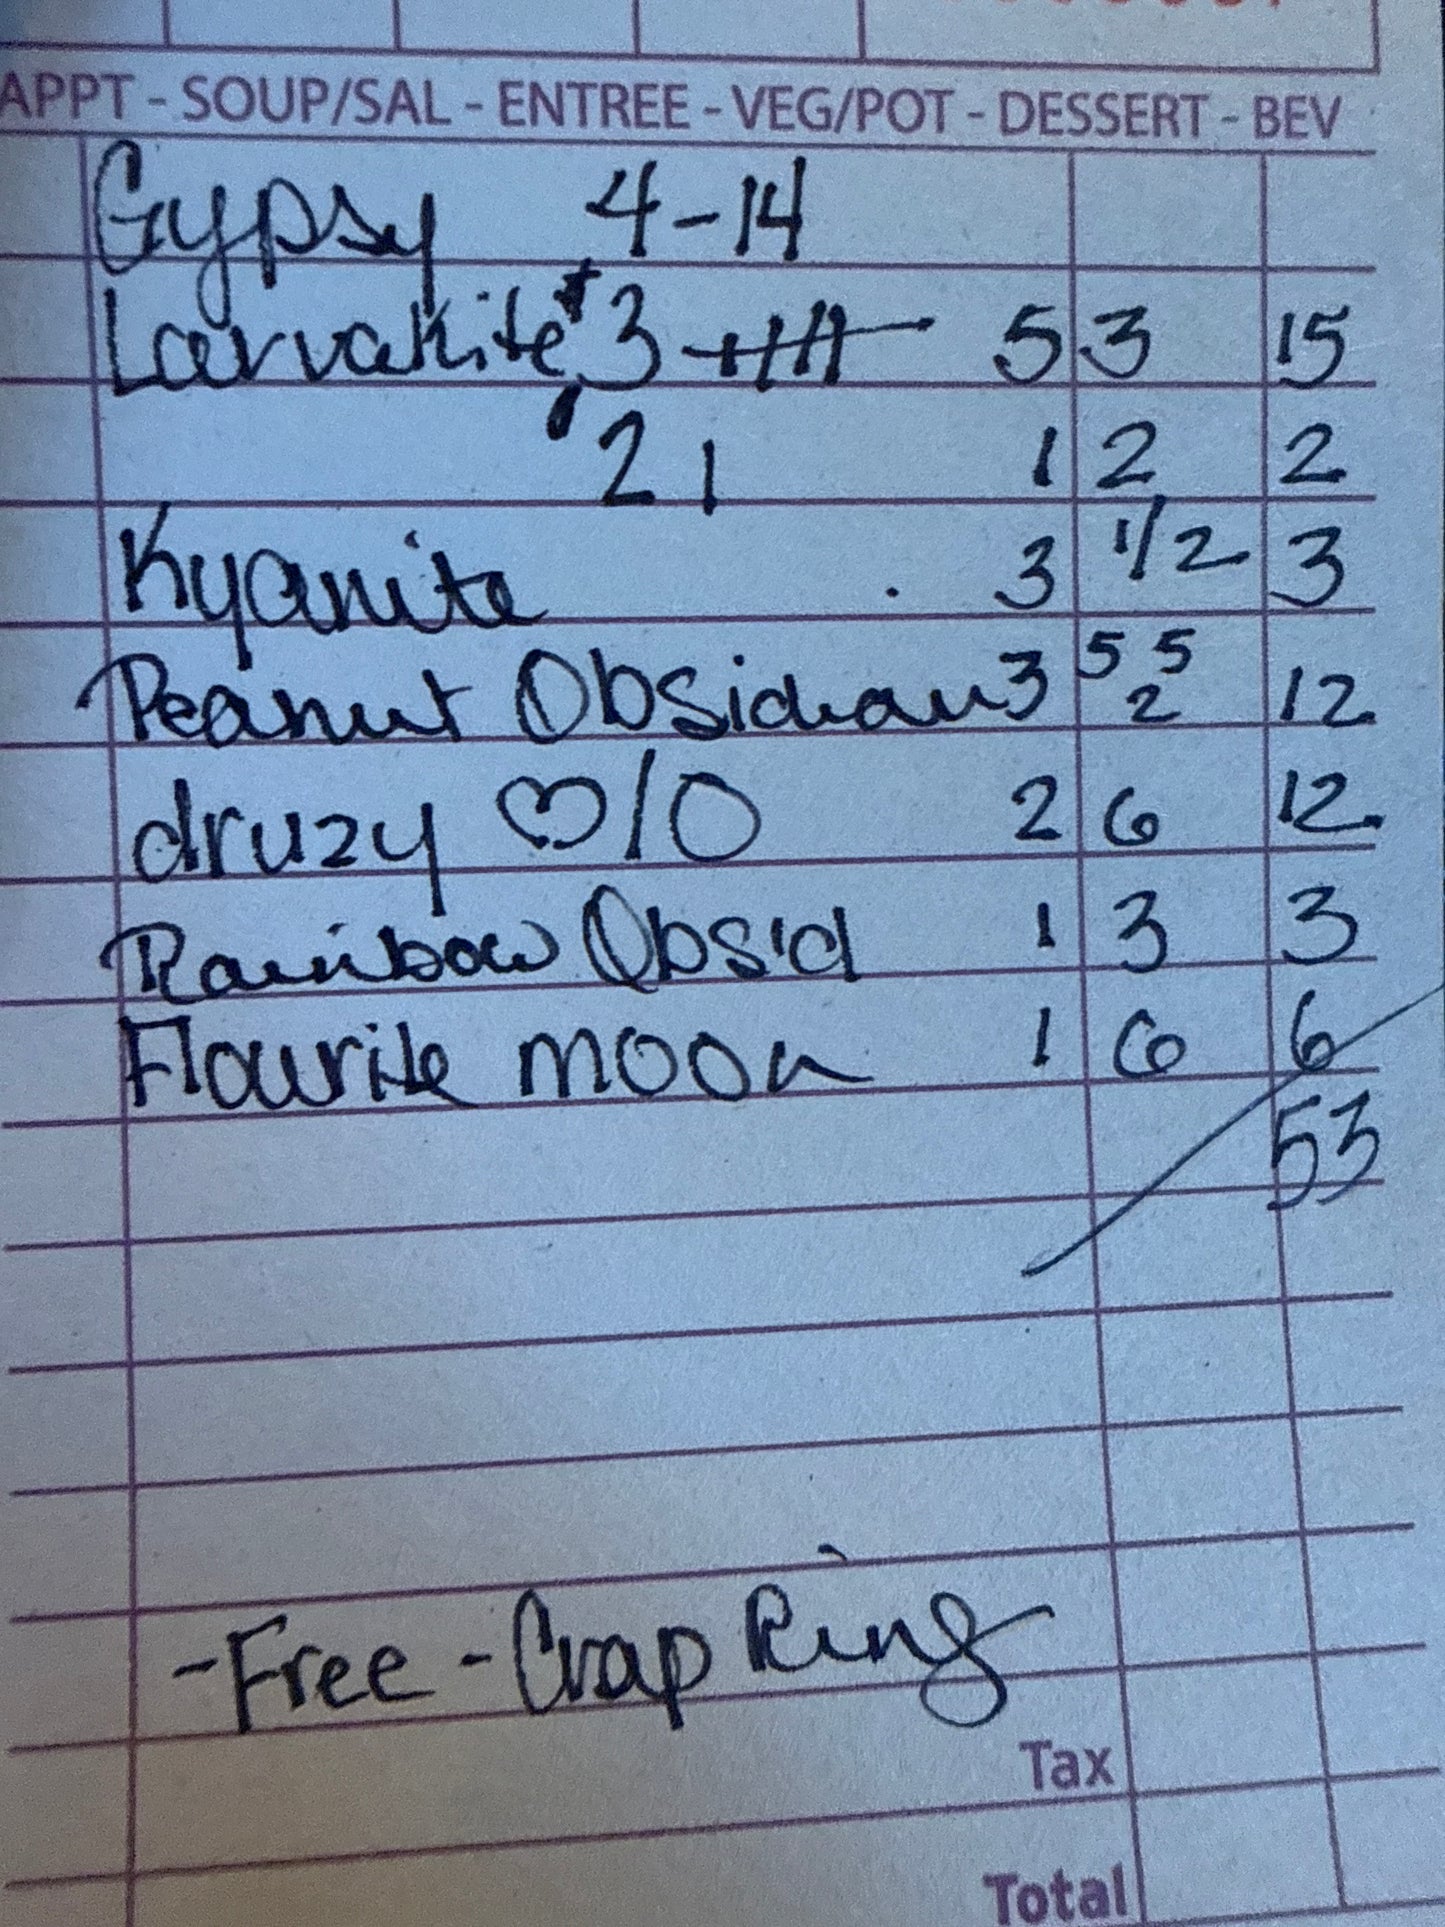 APPT - SOUP/SAL - ENTREE - VEG/POT - DESSERT - BEV
Gypsy 4-14
Larvakite $3 5 3 15
2 1 1 2 2
Kyanite 3 1/2 3
Peanut Obsidian 3 5 5 2 12
druzy ♡/O 2 6 12
Rainbow Obsid 1 3 3
Flourite moon 1 6 6
53
-Free - Crap Ring
Tax
Total